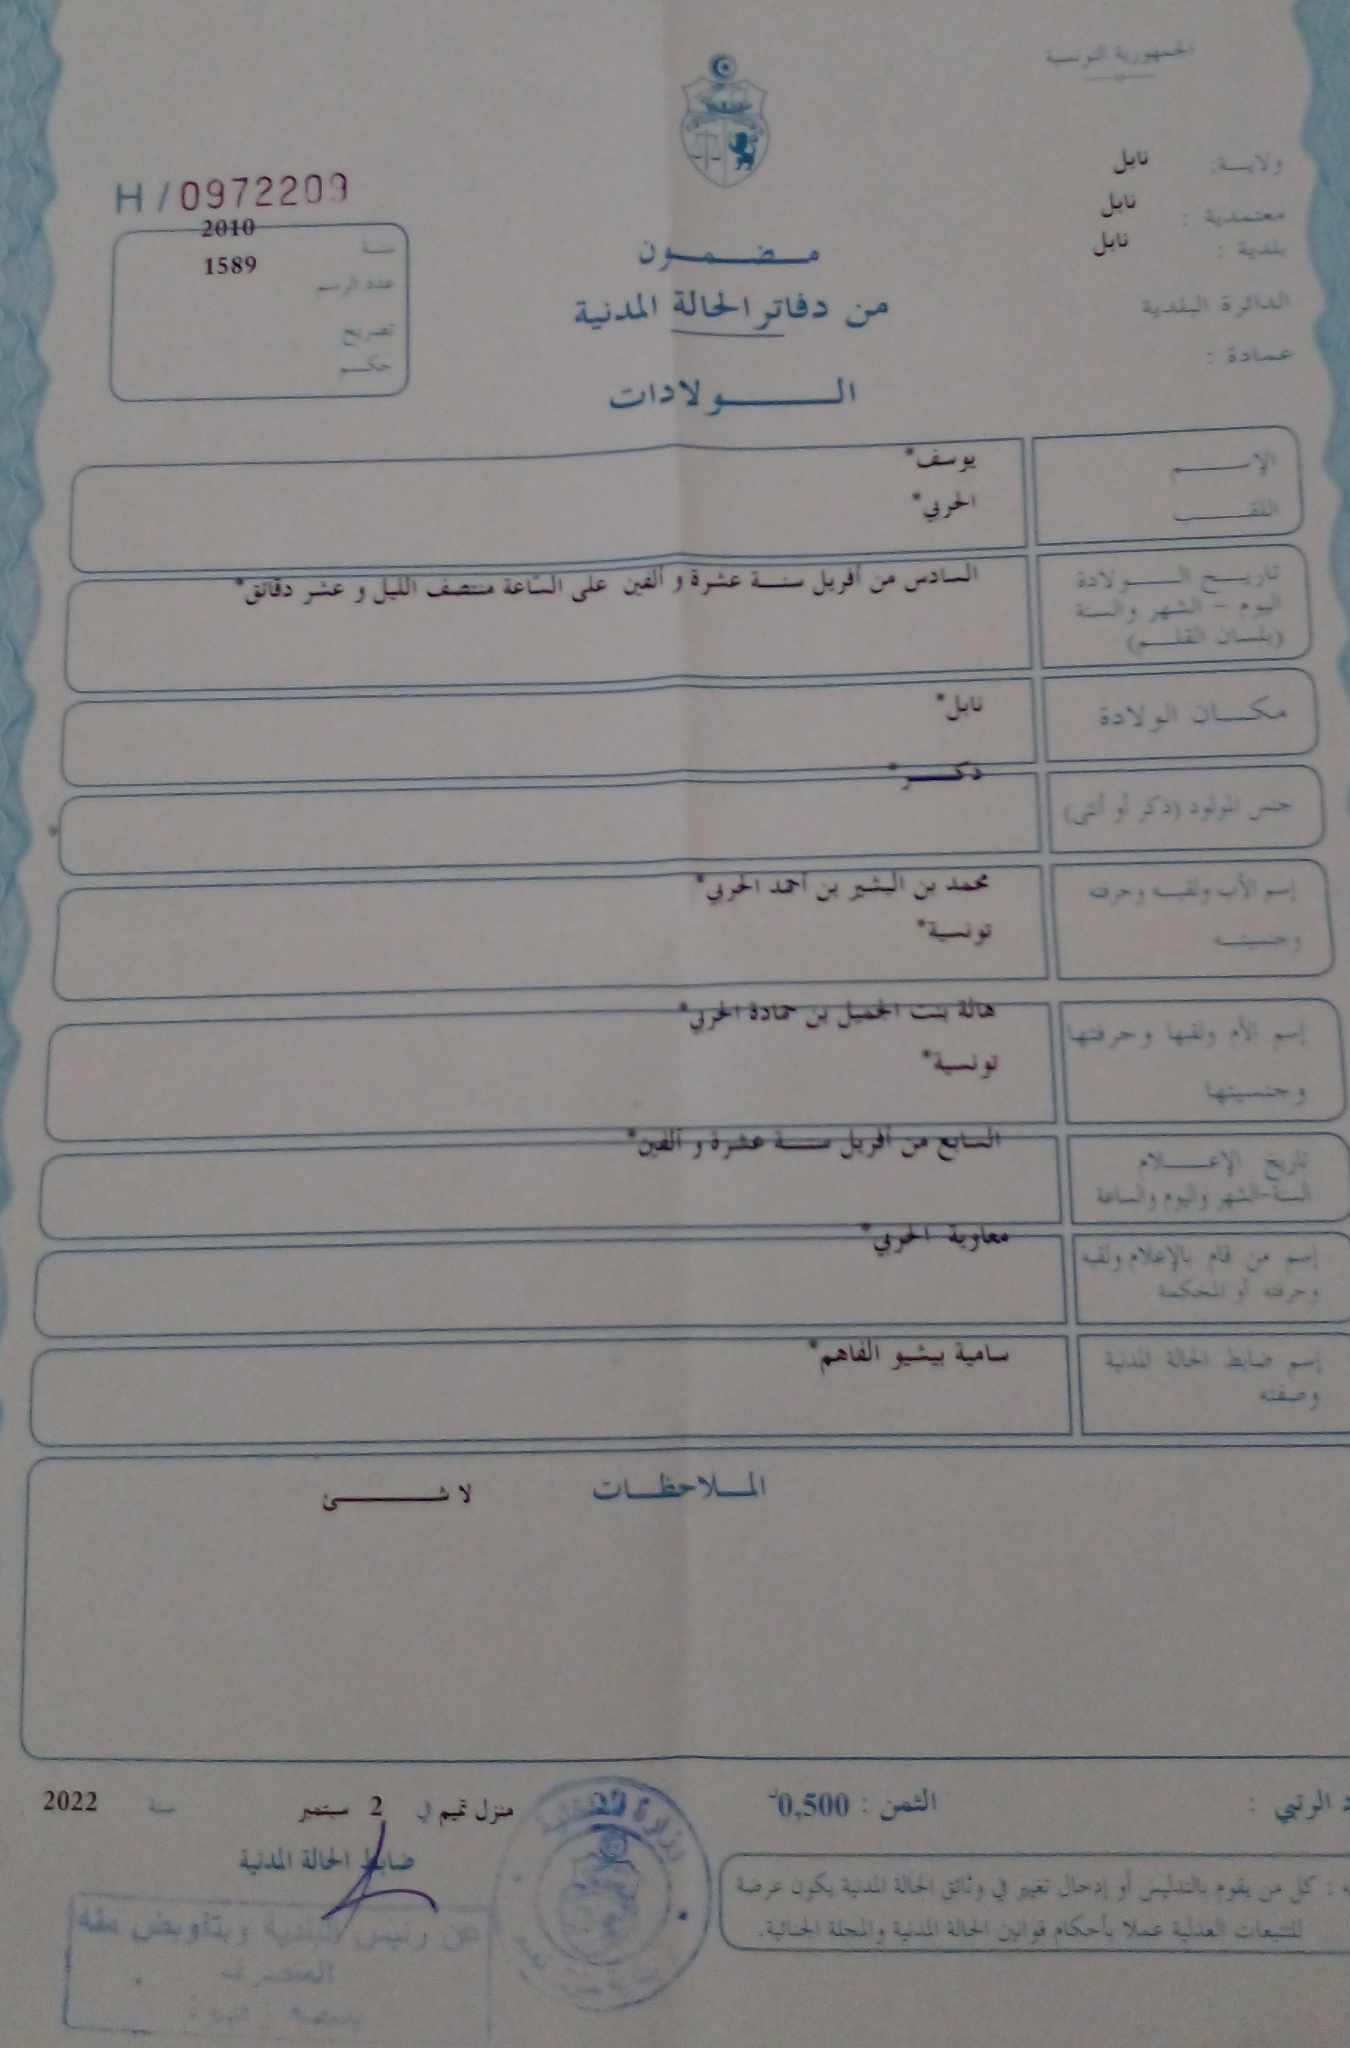 الجمهورية التونسية
ولايــة: نابل
معتمدية : نابل
بلدية : نابل
الدائرة البلدية
عمادة :
H / 0972209
سنة 2010
عدد الرسم 1589
تصريح
حكـم
مـضـمـون
من دفاتر الحالة المدنية
الـولادات
الإسـم يوسف*
اللقـب الحربي*
تاريـخ الـولادة السادس من أفريل سنـة عشرة و ألفين على السّاعة منتصف الليل و عشر دقائق*
اليوم - الشهر والسنة
(بلسان القلـم)
مكـان الولادة نابل*
جنس المولود (ذكر أو أنثى) ذكـر*
*
إسم الأب ولقبـه وحرفته محمد بن البشير بن أحمد الحربي*
وجنسيتـه تونسية*
إسم الأم ولقبها وحرفتها هالة بنت الجميل بن حمادة الحربي*
وجنسيتها تونسية*
تاريخ الإعـلام السابع من أفريل سنـة عشرة و ألفين*
السنة-الشهر واليوم والساعة
إسم من قام بالإعلام ولقبه معاوية الحربي*
وحرفته أو المحكمة
إسم ضابط الحالة المدنية سامية بيشيو الفاهم*
وصفته
المـلاحظـات لا شـئ
د الرتبي : الثمن : 0,500 منزل تميم في 2 سبتمبر سنة 2022
ضابط الحالة المدنية
ه : كل من يقوم بالتدليس أو إدخال تغيير في وثائق الحالة المدنية يكون عرضة
للتتبعات العدلية عملا بأحكام قوانين الحالة المدنية والمجلة الجنائية.
عن رئيس البلدية وبتفويض منه
المتصرف